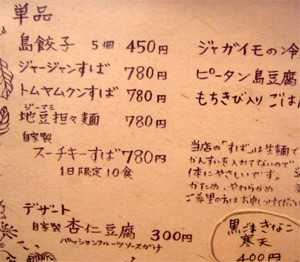 単品
島餃子 5個 450円
ジャージャンすば 780円
トムヤムクンすば 780円
ジーマミ
地豆担々麺 780円
自家製
スーチキーすば 780円
1日限定10食
デザート
自家製 杏仁豆腐 300円
パッションフルーツソースがけ
ジャガイモの冷
ピータン島豆腐
もちきび入りごは
当店の「すば」は生麺で
かんすいを入れてないので
体にやさしいです。
かため、やわらかめ
ご希望の方はお申しつけくださ
黒港きなこ
寒天
400円